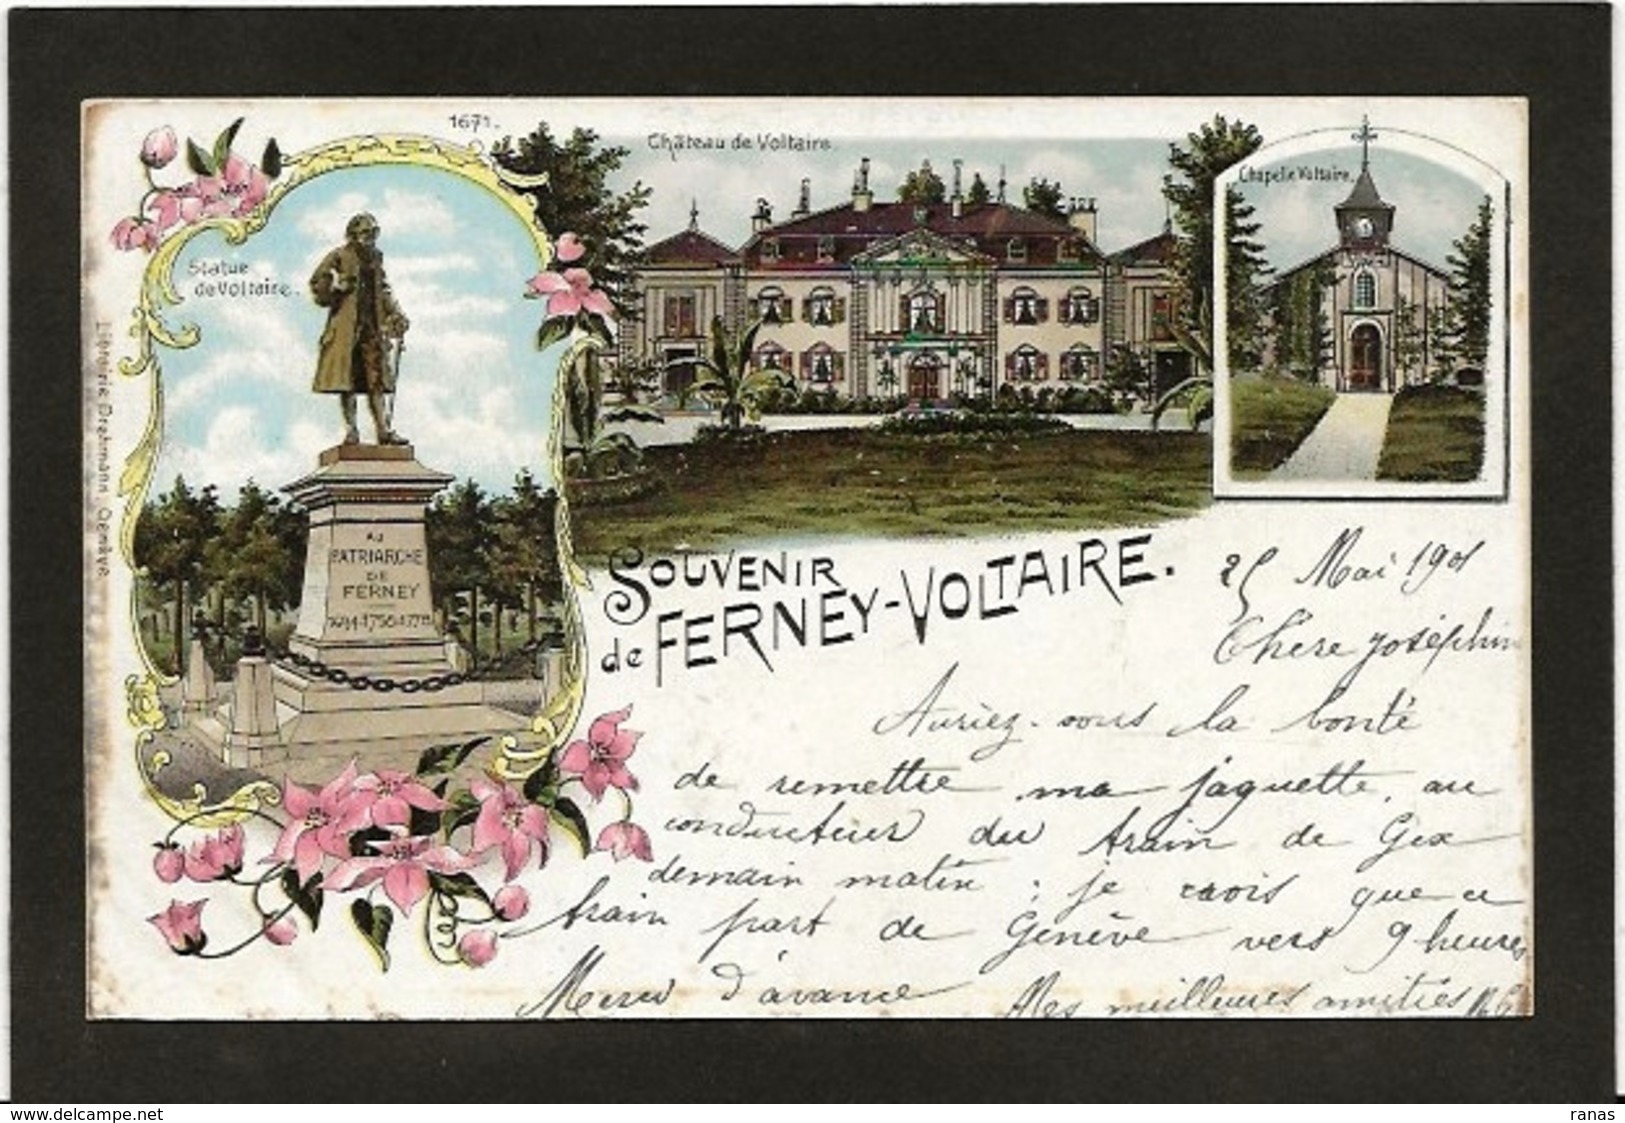 1671.
Château de Voltaire.
Chapelle Voltaire.
Statue
de Voltaire.
Librairie Drehmann Genève
AU
PATRIARCHE
DE
FERNEY
SOUVENIR
de FERNEY-VOLTAIRE.
25 Mai 1901
Chère Joséphin
Auriez-vous la bonté
de remettre ma jaquette, au
conducteur du train de Gex
demain matin ; je crois que ce
train part de Genève vers 9 heures
Merci d'avance
Mes meilleures amitiés
www.delcampe.net
ranas